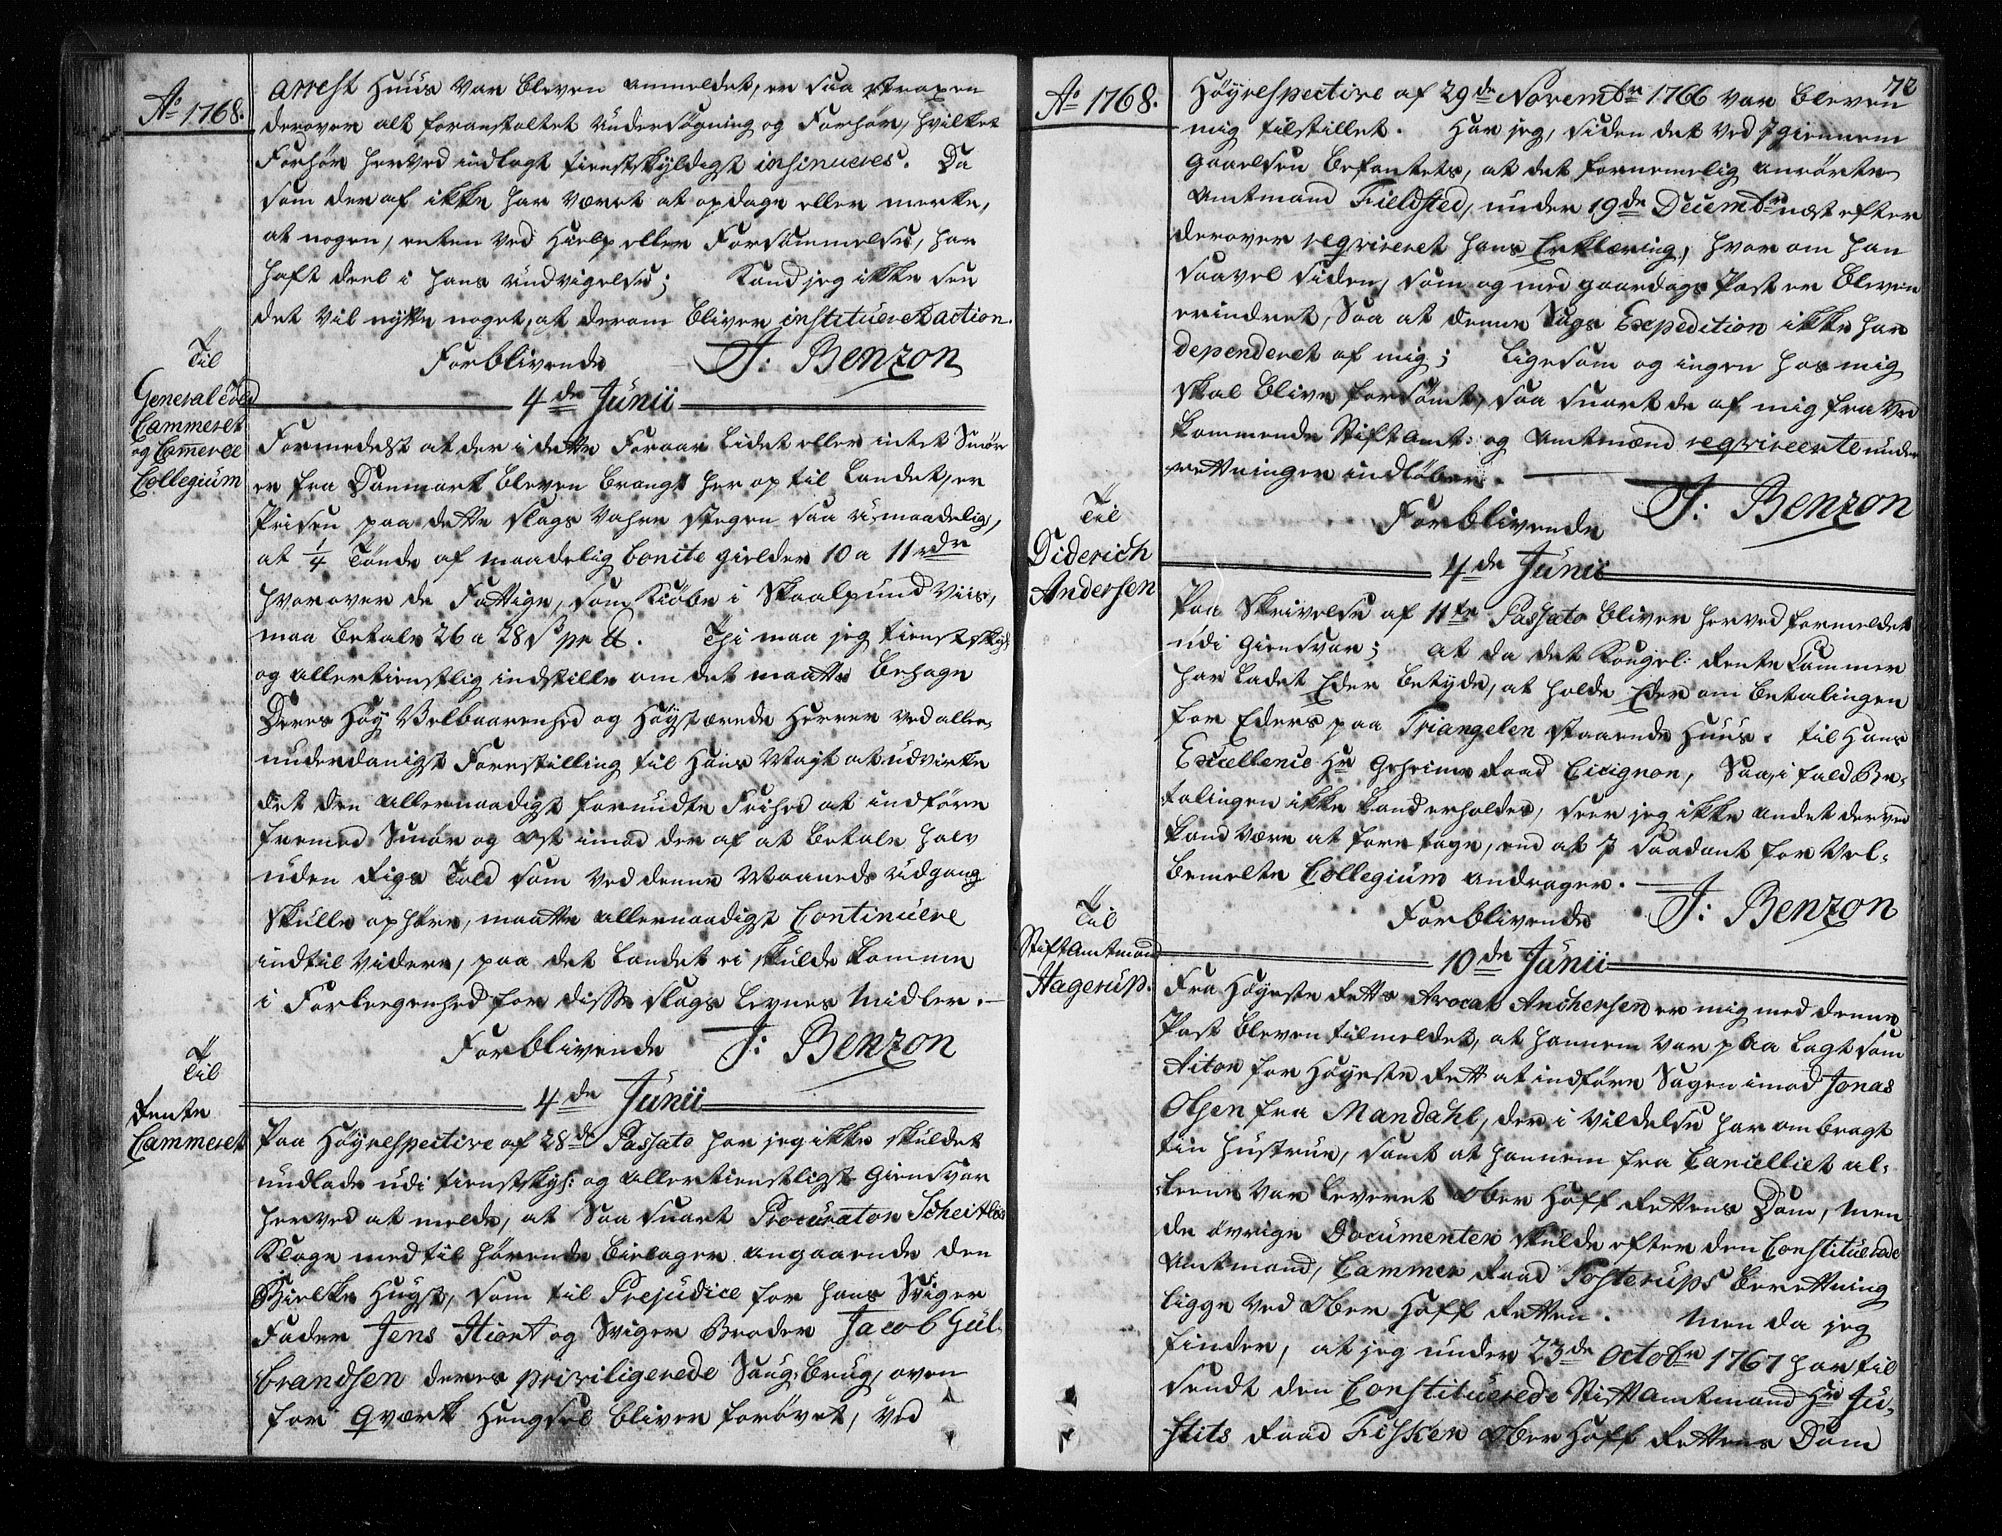 Ao 1768.
Arrest Huus var bleven anmeldet, er saa straxen
derover alt foranstaltet undersøgning og Forhør, hvilket
Forhør herved indlagt tienstskyldigst insinueres. Da
som deraf ikke har været at opdage eller merke,
at nogen, enten ved Hielp eller Forsømmelse, har
haft deel i hans undvigelse; Kand jeg ikke see
det vil nytte noget, at derom bliver instituered action.
Forblivende J: Benzon
Til
General Told
Cammeret
og Comerce
Collegium
4de Junii
Formedelst at der i dette Foraar lidet eller intet Smør
er fra Danmark bleven bragt her op til Landet, er
Prisen paa dette slags Vahre stegen saa umaadelig,
at 1/4 Tønde af maadelig bonite gielder 10 a 11 rdr
hvorover de Fattige, som Kiøbe i Skaalpund Viis,
maa betale 26 a 28 s pr ℔. Thi maa jeg tienstskyl:
og allertienstlig indstille om det maatte behage
Deres Høy Velbaarenhed og Høystærede Herrer ved aller-
underdanigst Forestilling til Hans Mayt at udvirke
det den allernaadigst forundte Frihed at indføre
fremed Smør og Ost imod der af at betale halv
uden Rigs Told som ved denne Maaneds udgang
skulle ophøre, maatte allernaadigst Continuere
indtil videre, paa det Landet ei skulde komme
i Forleegenhed for disse slags Levnes Midler.
Forblivende J: Benzon
Til
Rente
Cammeret
4de Junii
Paa Høyrespective af 28de Passato har jeg ikke skuldet
undlade udi tienstskyl: og allertienstligst Giensvar
herved at melde, at saa snart Procurator Scheitlis
Klage med tilhørende bielager angaaende den
Bielke Hugst, som til Prejudice for hans Sviger
Fader Jens Hiort og Sviger Broder Jacob Gul-
brandsen deres priviligerede Saug-brug, oven
for Qværk Hengsel bliver forøvet, ved
72
Ao 1768.
Høyrespective af 29de Novembr 1766 var bleven
mig tilstillet. Har jeg, siden det ved Igiennem
gaaelsen befantes, at det fornemelig anrørte
Amtmand Fieldsted, under 19de Decembr næst efter
derover reqvireret hans Erklæring, hvor om han
saavel siden, som og med gaardags Post er bleven
erindret, Saa at denne Sags Expedition ikke har
dependeret af mig; Ligesom og ingen hos mig
skal blive forsømt, saa snart de af mig fra ved
kommende Stiftamt: og Amtmænd reqvireerte under
rettninger indløber.
Forblivende J: Benzon
Til
Diderich
Andersen
4de Junii
Paa Skrivelse af 11te Passato bliver herved formeldet
udi Giensvar; at da det Kongel: Rente Cammer
har ladet Eder betyde, at holde Eder om betalingen
for Eders paa Triangelen staaende Huus. til Hans
Excellence Hr Geheime Raad Cicignon, Saa, i fald Be-
talingen ikke kand erholdes, seer jeg ikke andet derved
kand være at foretage, end at I saadant for Vel-
bemelte Collegium andrager.
Forblivende J: Benzon
Til
Stiftamtmand
Hagerup.
10de Junii
Fra Høyeste Retts Avocat Anchersen er mig med denne
Post bleven tilmeldet, at hannem var paa lagt som
Actor for Høyeste Rett at indføre Sagen imod Jonas
Olsen fra Mandahl, der i Vildelse har ombragt
sin Hustrue, samt at hannem fra Cancelliet al-
leene var leveret Ober Hoff Rettens Dom, men
de øvrige Documenter skulde efter den Constituerede
Amtmand, Cammer Raad Tosterups berettning
ligge ved Ober Hoff Retten. Men da jeg
finder, at jeg under 23de Octobr 1767 har til
sendt den Constituerede Stiftamtmand Hr Ju-
stits Raad Fisker Ober Hoff Rettens Dom